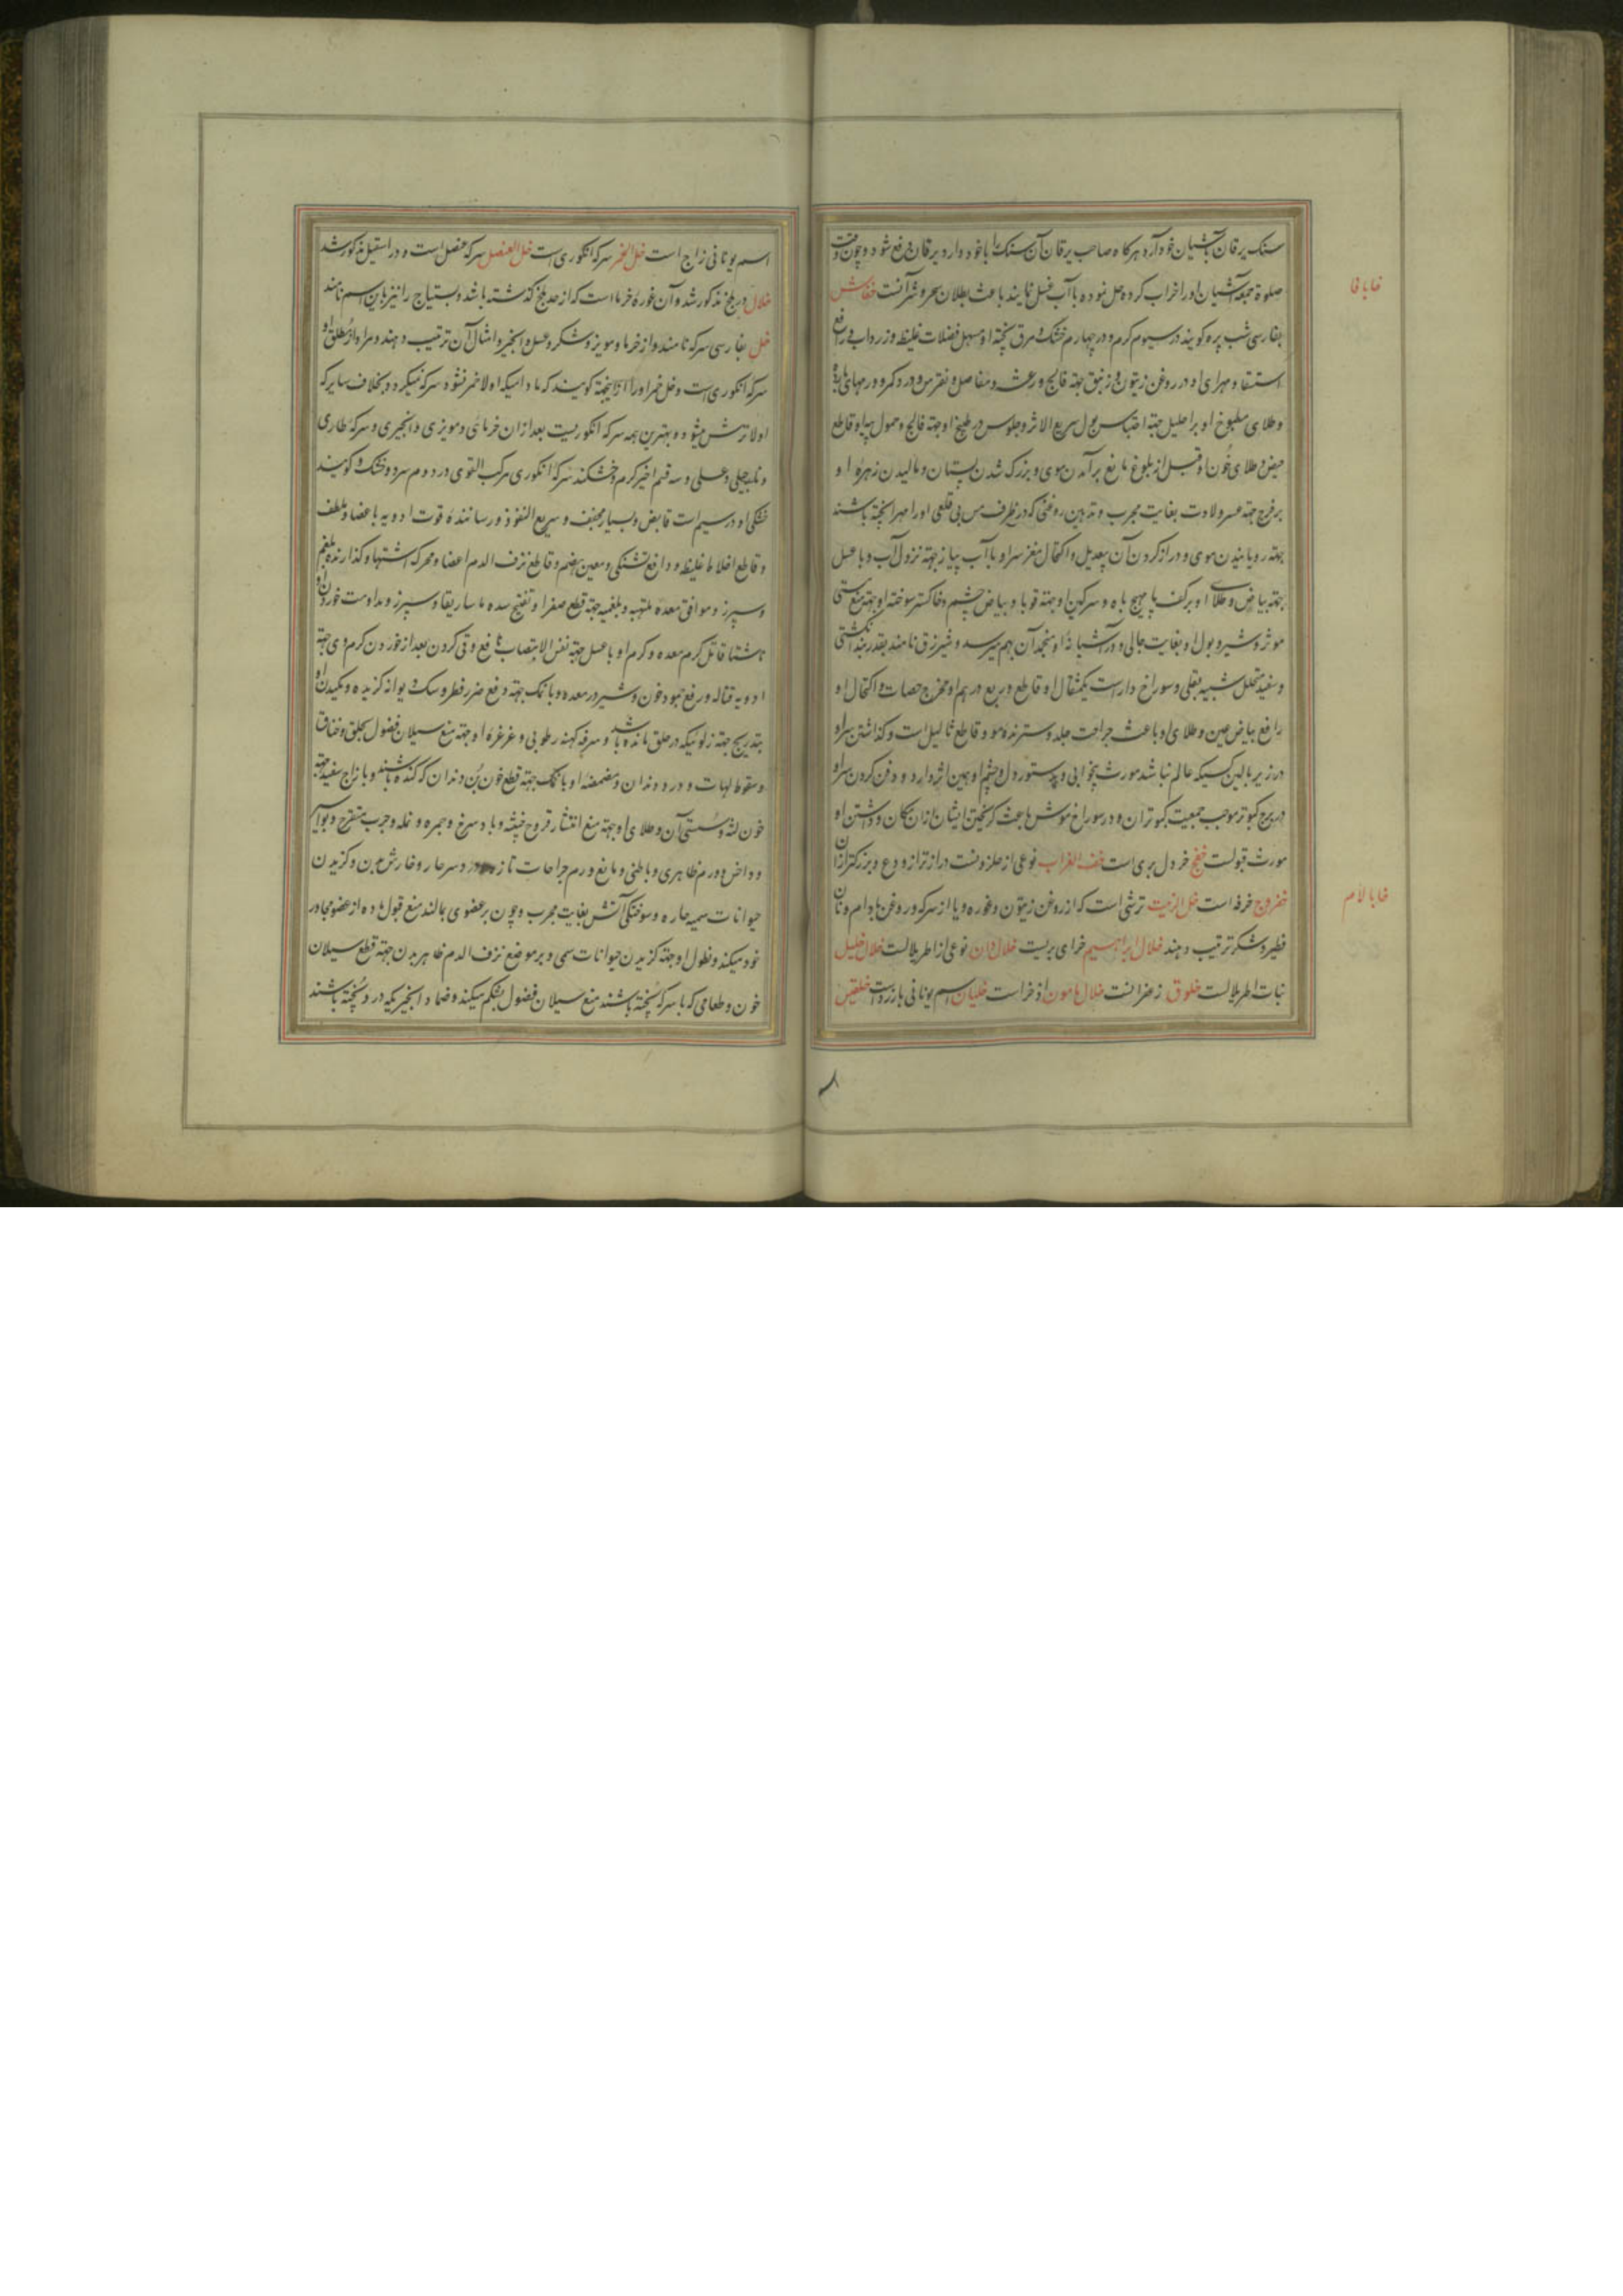 سنک یرقان بآشیان خود آرد هرکاه صاحب یرقان آن سنک را باخود دارد یرقان دفع شود و چون وقت
صلوة جمعه آشیان او را خراب کرده حل نموده با آب غسل نمایند باعث بطلان سحر و شر آنست خفاش
بفارسی شب پره کویند در سیوم کرم و در چهارم خشک و مرق پخته او مسهل فضلات غلیظ و زرداب و رافع
استسقا و مهرای او در روغن زیتون و زنبق جهة فالج و رعشه و مفاصل و نقرس و درد کمر و ورمهای بارده
وطلای مطبوخ او بر احلیل جهة احتباس بول سریع الاثر و جلوس در طبیخ او جهة فالج و حمول پیه او قاطع
حیض و طلای خون او قبل از بلوغ مانع برآمدن موی و بزرک شدن پستان و مالیدن زهره او
بر فرج جهة عسر ولادت بغایت مجرب و تدهین روغنی که در ظرف مس بی قلعی او را مهرا پخته باشند
جهة رویانیدن موی و دراز کردن آن بیعدیل و اکتحال مغز سر او با آب پیاز جهة نزول آب و با عسل
جهة بیاض و طلای او بر کف پا مهیج باه و سرکین او جهة قوبا و بیاض چشم و خاکستر سوخته او جهة منع مستی
موثر و شیر و بول او بغایت جالی و در آشیانه او منجد آن بهم میرسد و شیرزق نامند بقدر بند انکشتی
و سفید متخلل شبیه بقلی و سوراخ دار است یکمثقال او قاطع و ربع درهم او مخرج حصات و اکتحال او
رافع بیاض عین و طلای او باعث جراحت جلد و سترنده مو و قاطع ثالیل است و کذاشتن سر او
در زیر بالین کسیکه عالم نباشد مورث بیخوابی و بدستور دل و چشم او همین اثر دارد و دفن کردن سر او
در برج کبوتر موجب جمعیت کبوتران و در سوراخ موش باعث کریختن ایشان از ان مکان و داشتن او
مورث قبولست خفج خردل بری است خف الغراب نوعی از حلزونست درازتر از ودع و بزرکتر از ان
خفروج خرفه است خل الزیت ترشی است که از روغن زیتون و غوره و یا از سرکه و روغن بادام و نان
فطیر و شکر ترتیب دهند خلال ابراهیم خرای بریست خلال دان نوعی از اطریلالست خلال خلیل
نبات اطریلالست خلوق زعفرانست خلال مامون اذخر است خلیان اسم یونانی بارزد است خلقین
خا با فا
خا با لام
اسم یونانی زاج است خل الخمر سرکه انکوری است خل العنصل سرکه عنصل است و در اسقیل مذکور شد
خلال در بلح مذکور شد و آن غوره خرما است که از حد بلح کذشته باشد و بستیاج را نیز باین اسم نامند
خل بفارسی سرکه نامند و از خرما و مویز و شکر و عسل و انجیر و امثال آن ترتیب دهند و مراد از مطلق او
سرکه انکوری است و خل خمر او را ازاینجهة کویند که مادامیکه اولا خمر نشود سرکه نمیکردد بخلاف سایر که
اولا ترش میشود و بهترین همه سرکه انکوریست بعد از ان خرمائی و مویزی و انجیری و سرکه طاری
و نارجیلی و عسلی و سه قسم اخیر کرم و خشکند سرکه انکوری مرکب القوی در دوم سرد و خشک و کویند
خشکی او در سیم است قابض و بسیار مجفف و سریع النفوذ و رساننده قوت ادویه باعضا و ملطف
و قاطع اخلاط غلیظ و دافع تشنکی و معین هضم و قاطع نزف الدم اعضا و محرک اشتها و کذارنده بلغم
و سپرز و موافق معده ملتهبه و بلغمیه جهة قطع صفرا و تفتیح سده ماساریقا و سپرز و مداومت خوردن او
ناشتا قاتل کرم معده و کرم او با عسل جهة نفس الانتصاب نافع و قی کردن بعد از خوردن کرم وی جهة
ادویه قتاله و رفع جمود خون و شیر در معده و با نمک جهة دفع ضرر فطر و سک دیوانه کزیده و مکیدن او
بتدریج جهة زلوئیکه در حلق مانده باشد و سرفه کهنه رطوبی و غرغره او جهة منع سیلان فضول بحلق و خناق
و سقوط لهات و درد دندان و مضمضه او با نمک جهة قطع خون بن دندان که کنده باشند و با زاج سفید جهة
خون لثه و سستی آن و طلای او جهة منع انتشار قروح خبیثه و باد سرخ و جمره و نمله و جرب متقرح و بواسیر
و داخس و ورم ظاهری و باطنی و مانع ورم جراحات تازه و درد سر حار و خارش بدن و کزیدن
حیوانات سمیه حاره و سوختکی آتش بغایت مجرب و چون بر عضوی بمالند منع قبول ماده از عضو مجاور
خود میکند و نطول او جهة کزیدن حیوانات سمی و بر موضع نزف الدم ظاهر بدن جهة قطع سیلان
خون و طعامی که با سرکه پخته باشند منع سیلان فضول بشکم میکند و ضماد انجیریکه در او پخته باشند